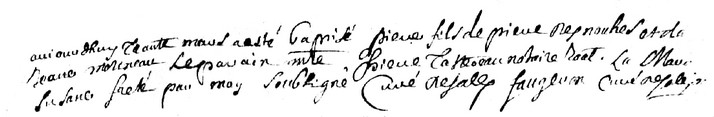 aujourdhuy trante mars a esté baptisé pierre fils de pierre Reynoubes et de
Jeanne moineau Le parain mtre pierre Tasteau notoire Royal. La Mare
Susane freté par moy soubsigné Curé de salles faugeron curé de salles